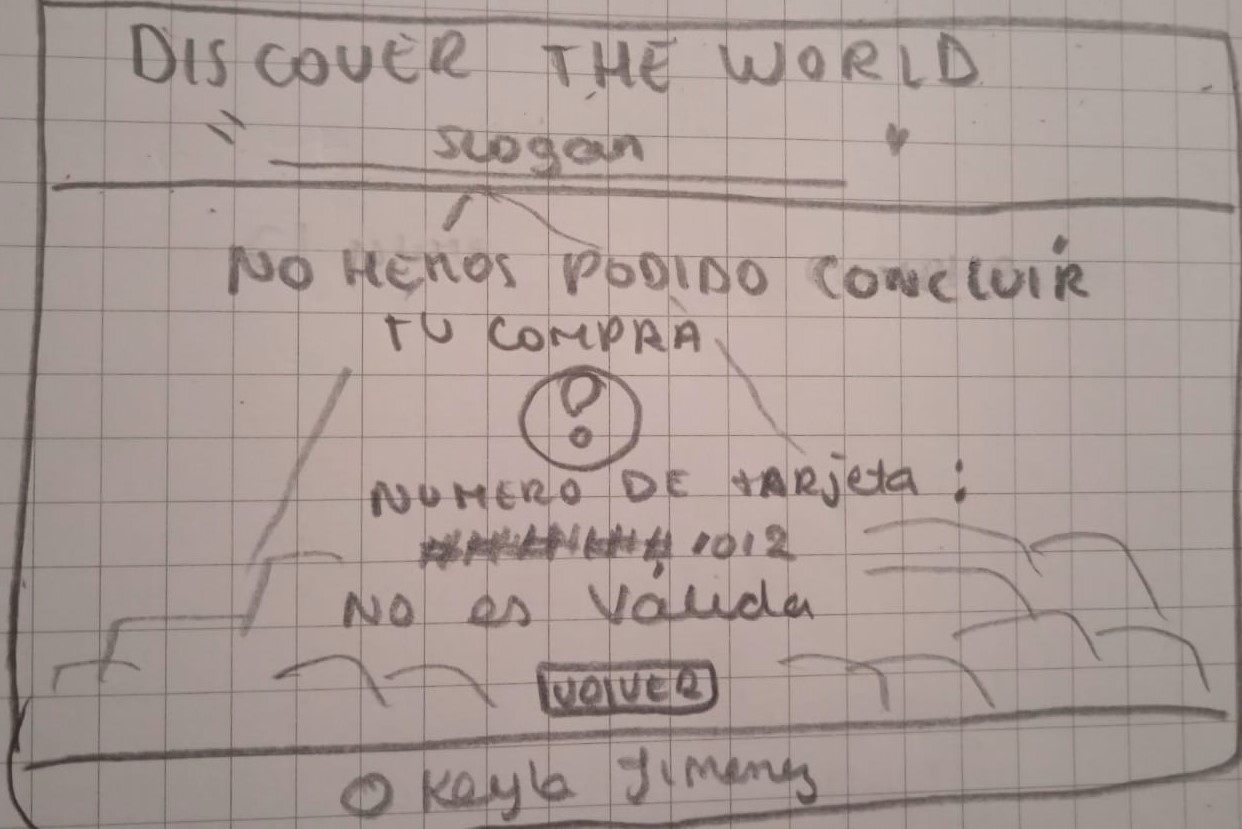 DISCOVER THE WORLD
slogan
NO HEMOS PODIDO CONCLUIR
TU COMPRA
NUMERO DE tARjeta :
######## 1012
NO es Válida
VOLVER
Keyla Jimenez